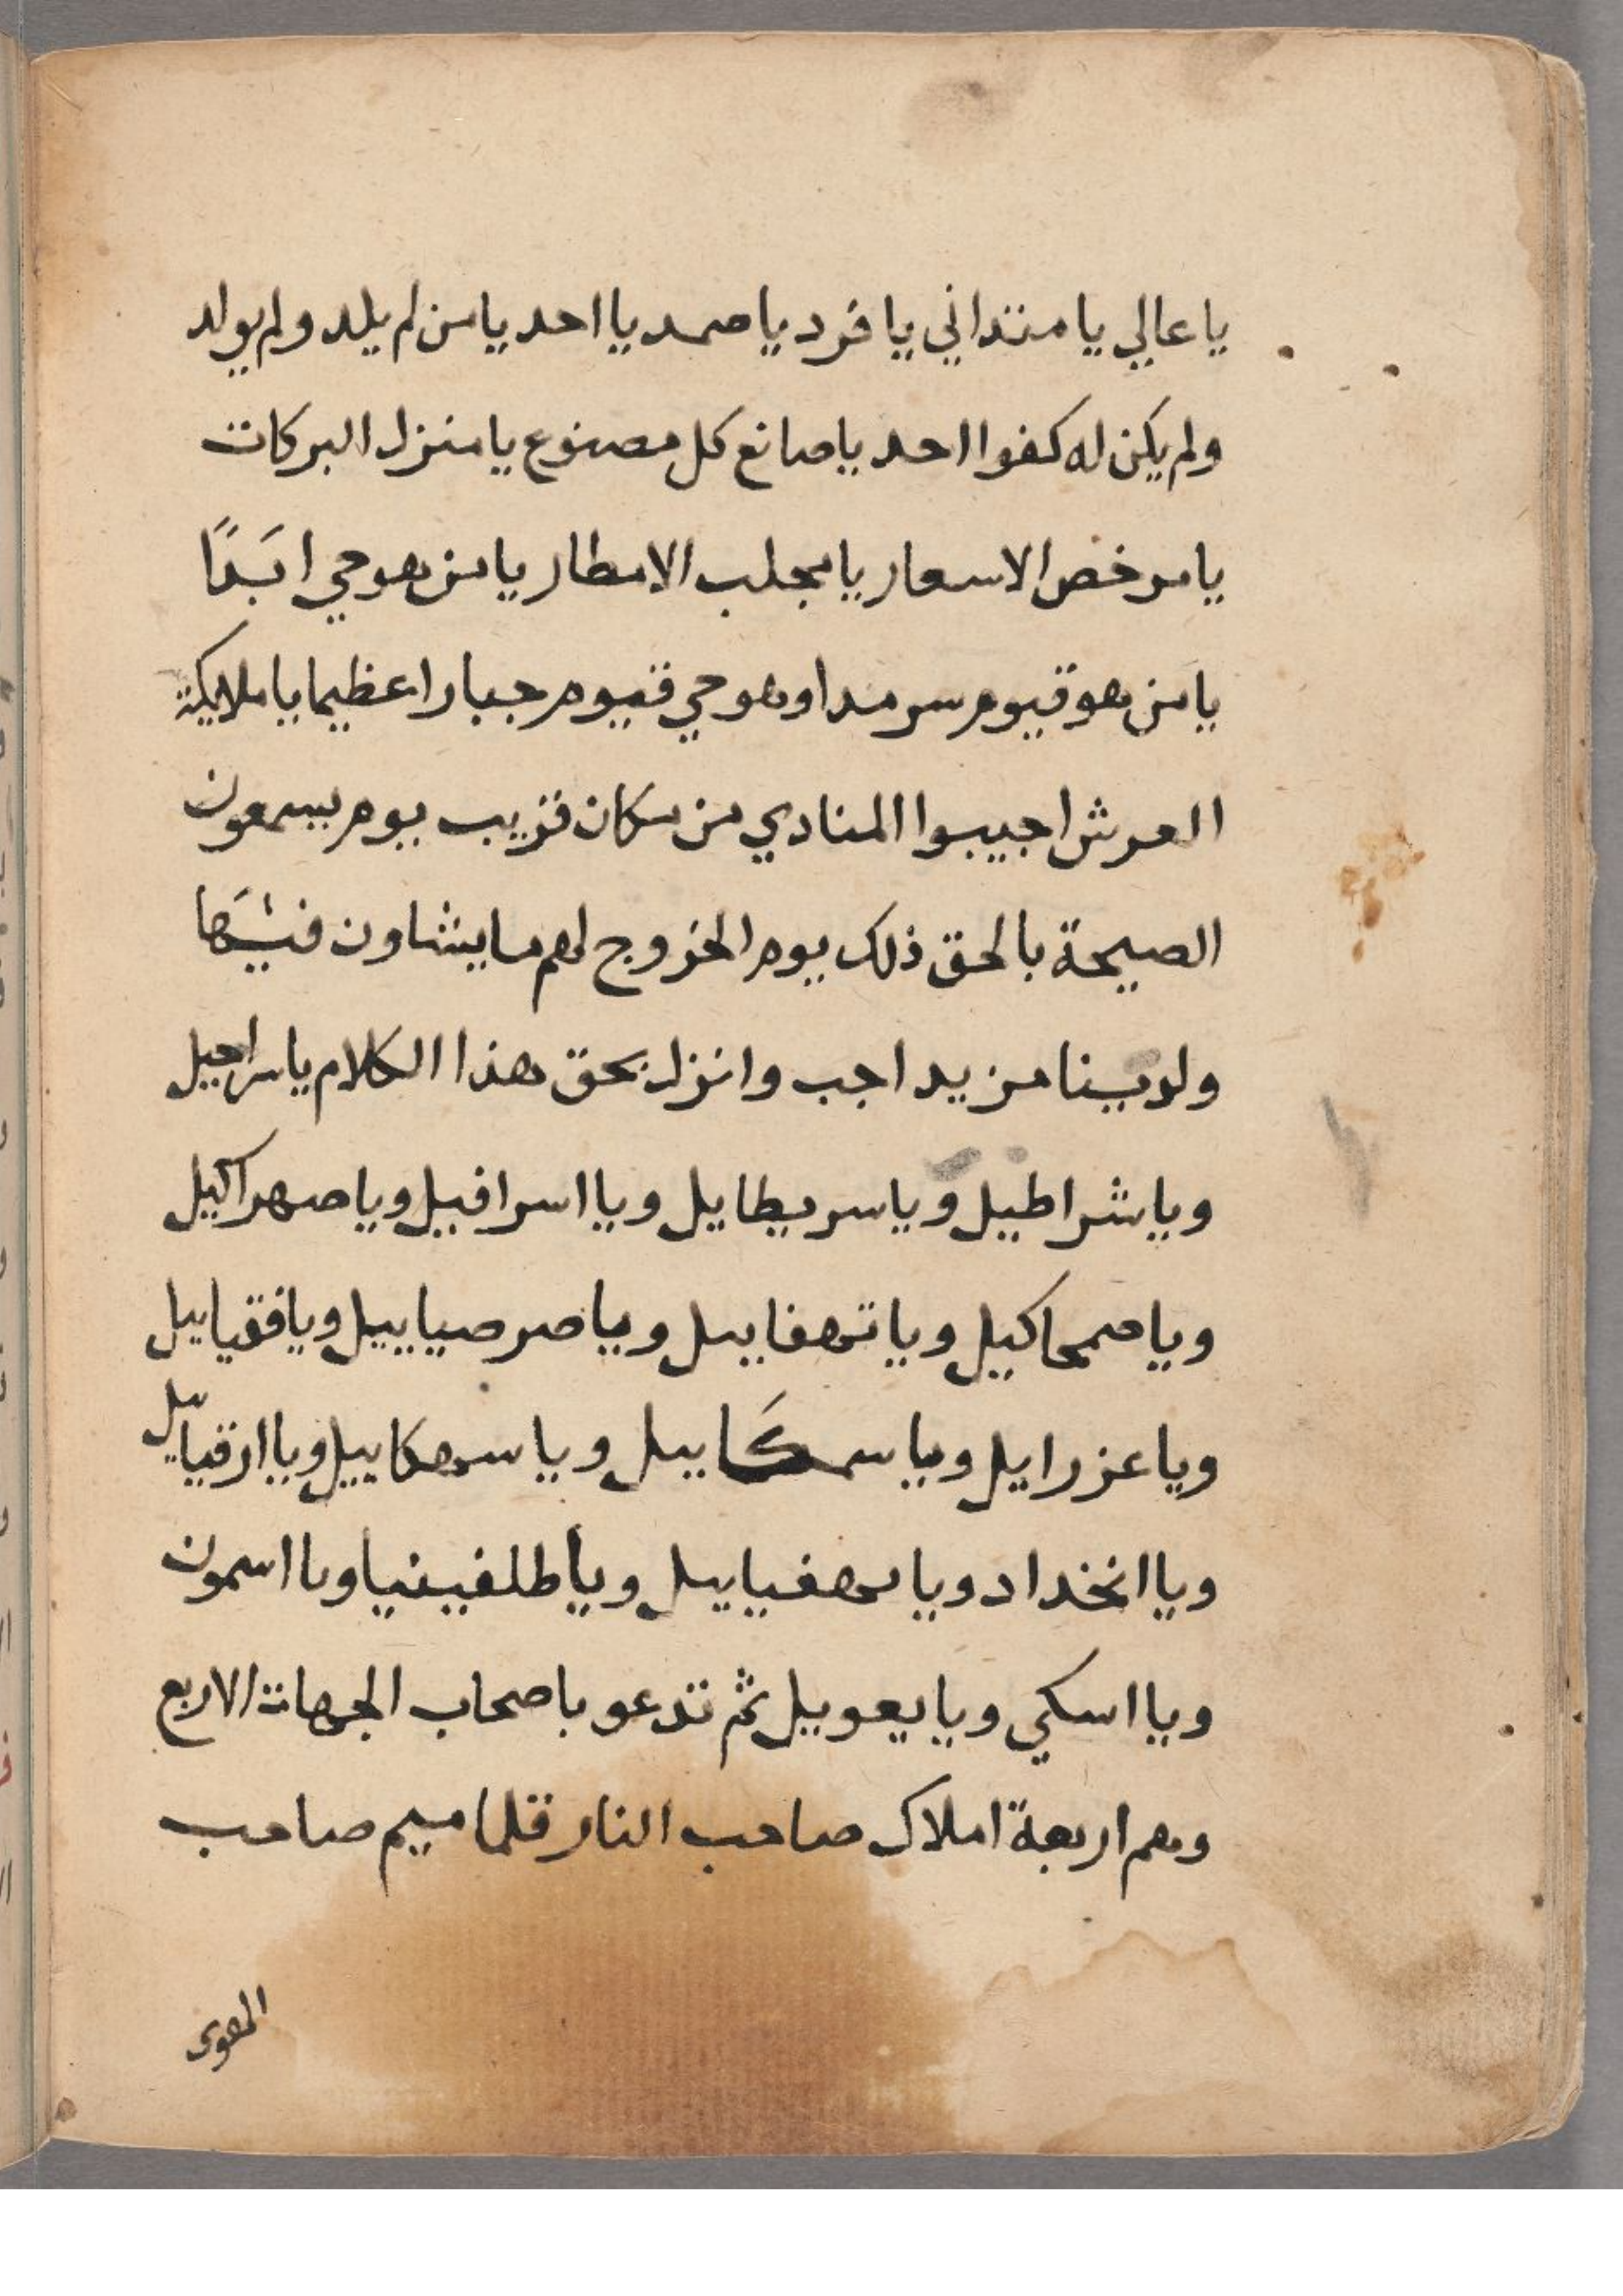 يا عالي يا متداني يا فرد يا صمد يا احد يا من لم يلد ولم يولد
ولم يكن له كفوا احد يا صانع كل مصنوع يا منزل البركات
يا مرخص الاسعار يا مجلب الامطار يا من هو حي ابَدًا
يا من هو قيوم سرمدا وهو حي قيوم جبارا عظيما يا ملايكة
العرش اجيبوا المنادي من مكان قريب يوم يسمعون
الصيحة بالحق ذلك يوم الخروج لهم ما يشاون فيَها
ولدينا مزيد اجب وانزل بحق هذا الكلام يا سراجيل
ويا شراطيل ويا سريطايل ويا اسرافيل ويا صهراكيل
ويا صمحاكيل ويا تهفاييل ويا صرصياييل ويا فقياييل
ويا عزرايل ويا سمكَاييل ويا سهكاييل ويا ارقياييل
ويا انخداد ويا ويا طلفينيا ويا اسمون
ويا اسكي ويا يعوييل ثم تدعو باصحاب الجهات الاربع
وهم اربعة املاك صاحب النار قلماميم صاحب